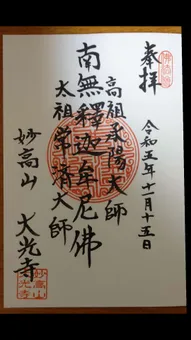 奉拝
令和五年十一月十五日
高祖承陽大師
南無釋迦牟尼佛
太祖常済大師
妙高山 大光寺
妙高山
大光寺